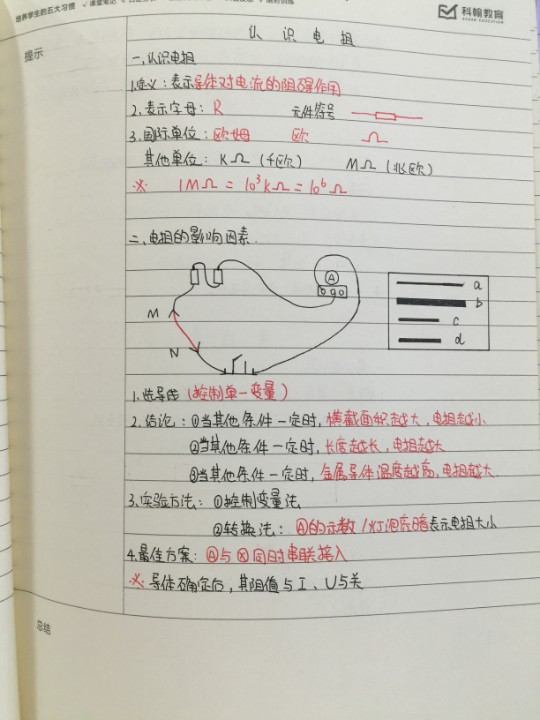 培养学生的五大习惯 ✓课堂笔记
科翰教育
提示
认识电阻
一、认识电阻
1.定义：表示导体对电流的阻碍作用
2.表示字母：R 元件符号
3.国际单位：欧姆 欧 Ω
其他单位：KΩ（千欧） MΩ（兆欧）
※ 1MΩ = 10³KΩ = 10⁶Ω
二、电阻的影响因素.
A
M
N
a
b
c
d
1.选导线（控制单一变量）
2.结论：①当其他条件一定时，横截面积越大，电阻越小
②当其他条件一定时，长度越长，电阻越大
③当其他条件一定时，金属导体温度越高，电阻越大.
3.实验方法：①控制变量法
②转换法：Ⓐ的示数/灯泡亮暗表示电阻大小
4.最佳方案：Ⓐ与⊗同时串联接入
※ 导体确定后，其阻值与I、U无关
总结